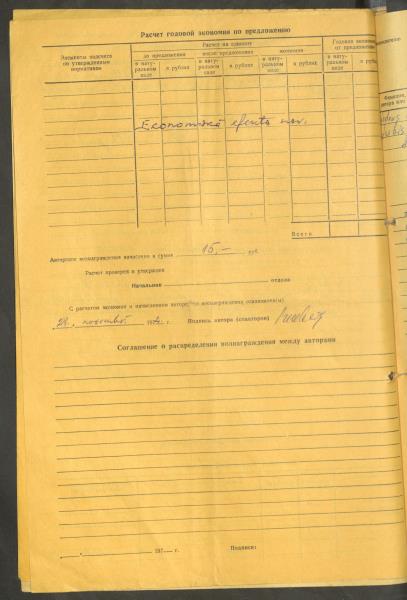 Расчет годовой экономии по предложению
Элементы расчета по утвержденным нормативам
Расчет на единицу
Годовая
от предложения
до предложения
после предложения
экономия
в нату-
ральном
виде
в рублях
в нату-
ральном
виде
в рублях
в нату-
ральном
виде
в рублях
в нату-
ральном
виде
в
Ekonomiskā efekta nav.
Всего
Авторское вознаграждение начислено в сумме 15,— руб.
Расчет проверен и утвержден
Начальник отдела
С расчетом экономии и начислением авторского вознаграждения ознакомлен(ы)
197 г. Подпись автора (соавторов)
Соглашение о распределении вознаграждения между авторами
197 г. Подписи: